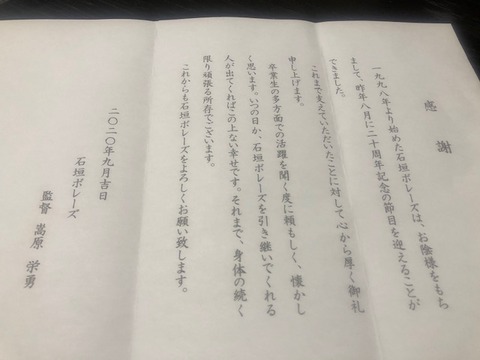 感謝
一九九八年より始めた石垣ボレーズは、お陰様をもち
まして、昨年八月に二十周年記念の節目を迎えることが
できました。
これまで支えていただいたことに対して心から厚く御礼
申し上げます。
卒業生の多方面での活躍を聞く度に頼もしく、懐かし
く思います。いつの日か、石垣ボレーズを引き継いでくれる
人が出てくればこの上ない幸せです。それまで、身体の続く
限り頑張る所存でございます。
これからも石垣ボレーズをよろしくお願い致します。
二〇二〇年九月吉日
石垣ボレーズ
監督 嵩原 栄勇